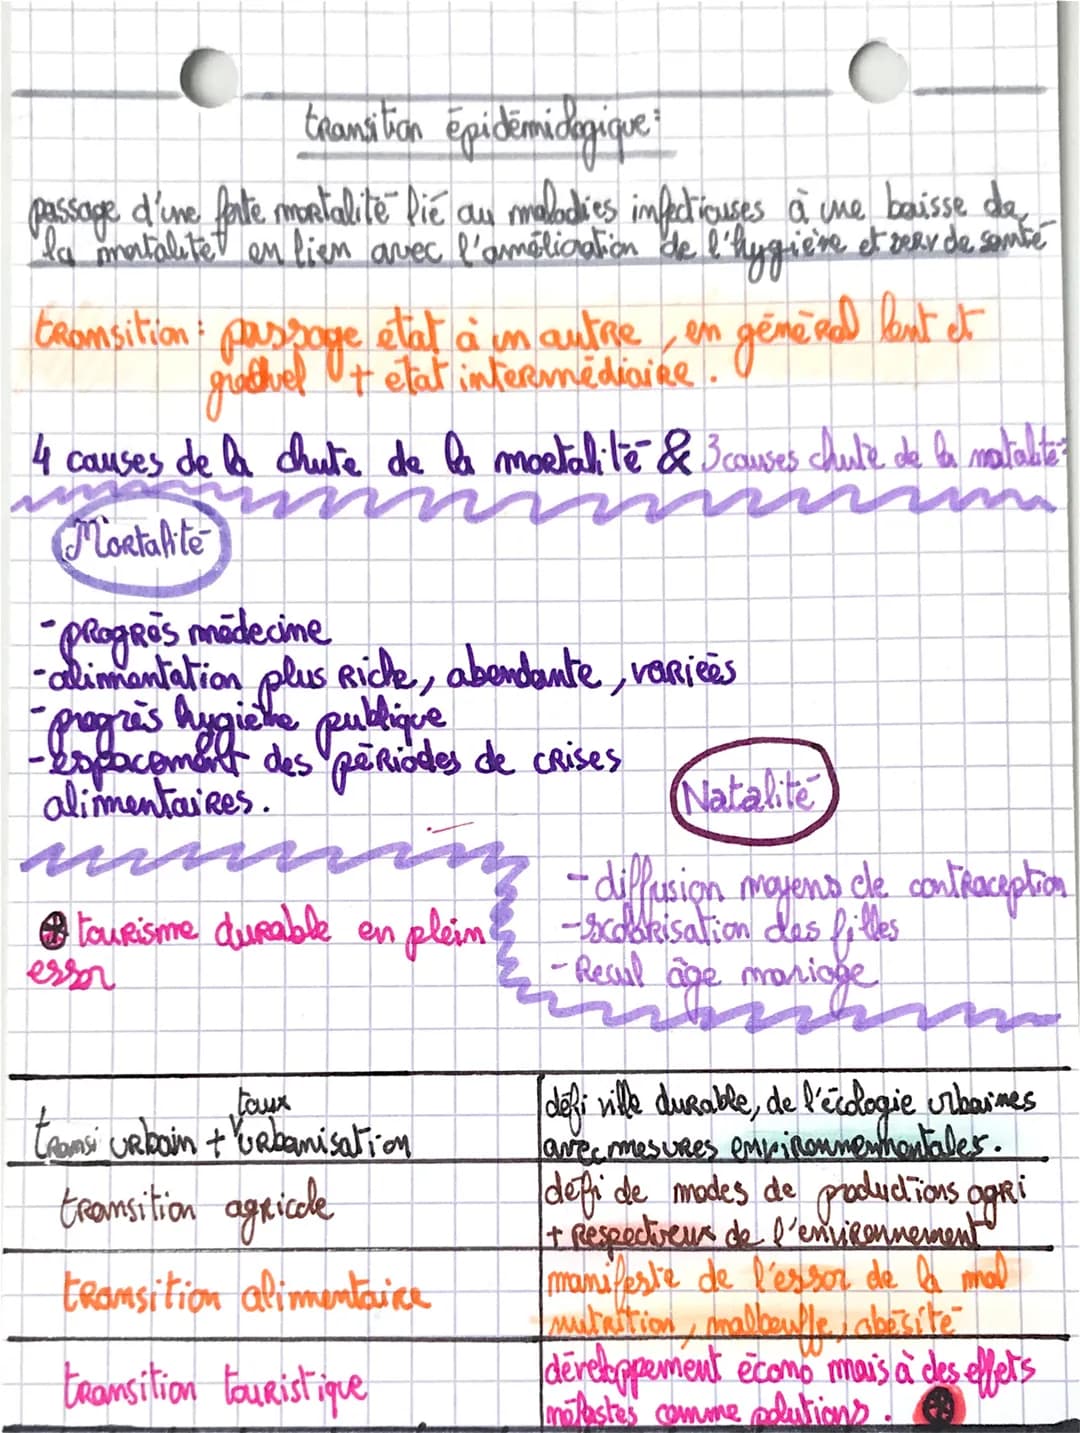 transition épidémiologique:
passage d'une forte mortalité lié au maladies infectieuses à une baisse de
la mortalité en lien avec l'amélioration de l'hygiène et serv de santé
transition: passage état à un autre, en général lent et
graduel + état intermédiaire.
4 causes de la chute de la mortalité & 3 causes chute de la natalité:
Mortalité
- progrès médecine
- alimentation plus riche, abondante, variées
- progrès hygiène publique
- espacement des périodes de crises
alimentaires.
Natalité
- diffusion moyens de contraception
- scolarisation des filles
- Recul âge mariage
⊛ tourisme durable en plein
essor
transi urbain + taux urbanisation
défi ville durable, de l'écologie urbaines
avec mesures environnementales.
transition agricole
défi de modes de productions agri
+ respectueux de l'environnement
transition alimentaire
manifeste de l'essor de la mal
nutrition, malbouffe, obésité
transition touristique
développement écono mais à des effets
néfastes comme polutions. ⊛